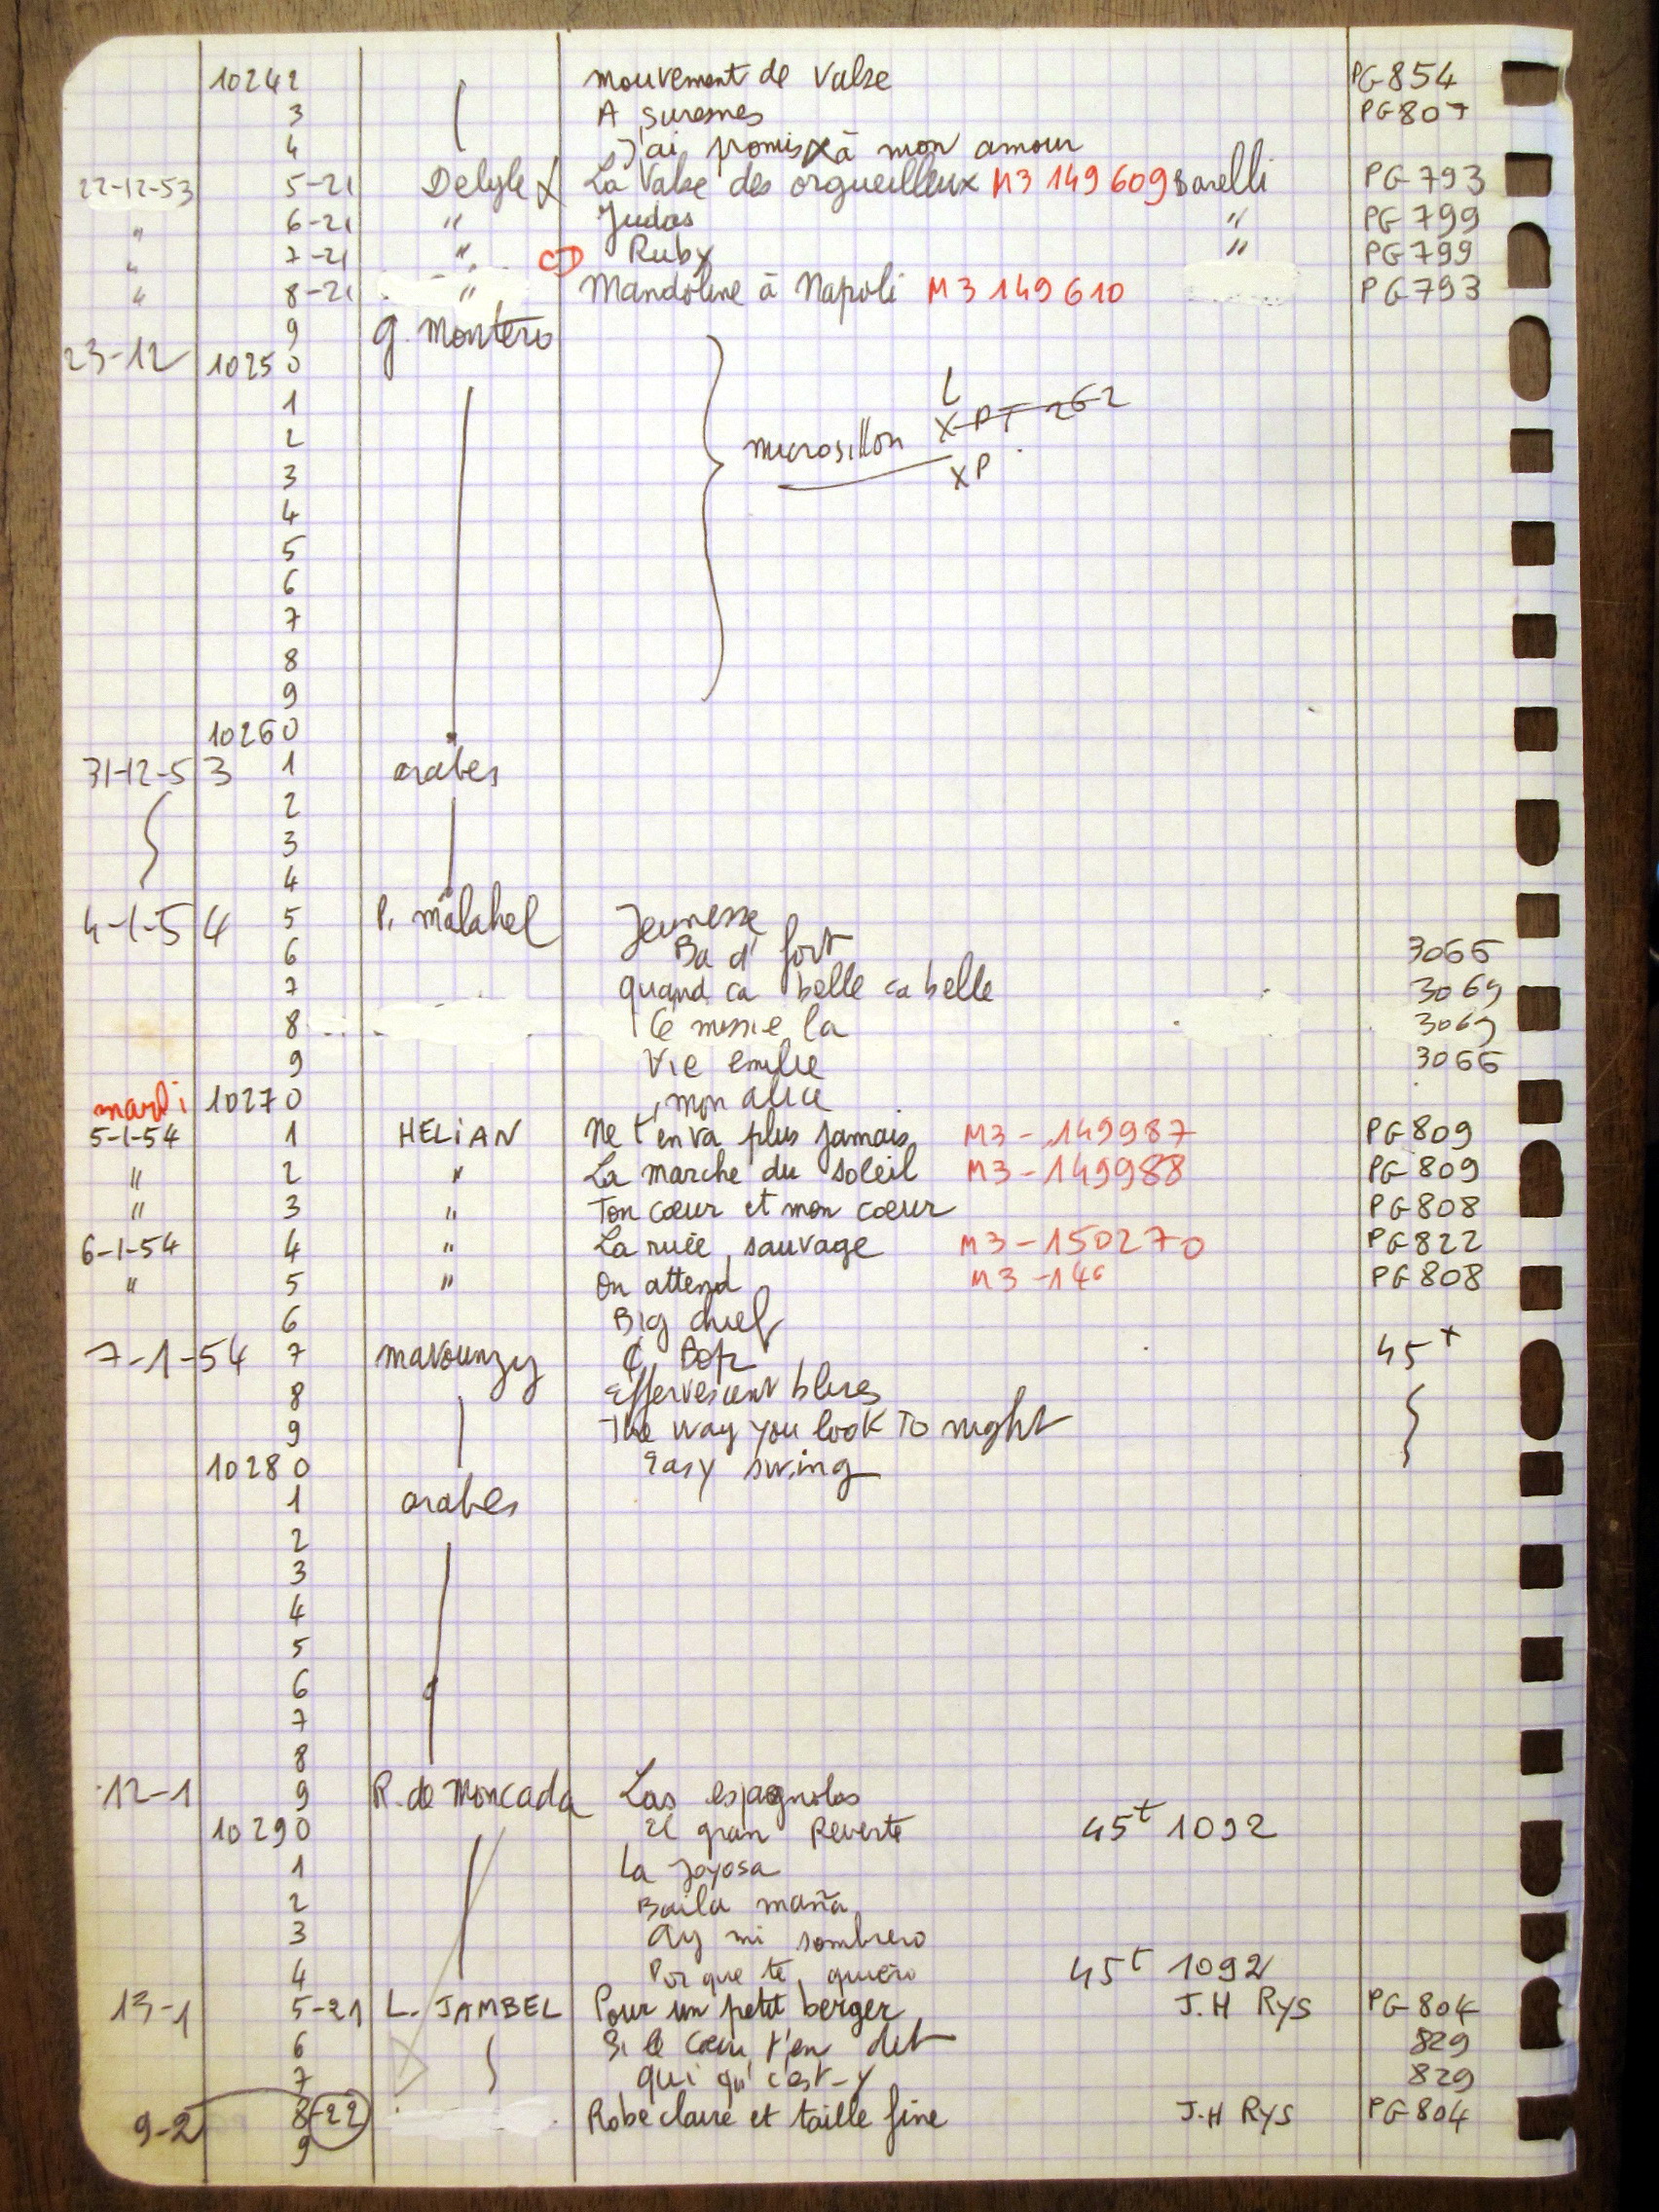 10242 mouvement de Valse PG 854
3 A suresnes PG 807
4 J'ai promis à mon amour
22-12-53 5-21 Delyle X La Valse des orgueilleux M3 149609 Barelli PG 793
" 6-21 " Judas " PG 799
" 7-21 " CD Ruby " PG 799
" 8-21 " Mandoline à Napoli M3 149610 PG 793
9 G. Montero
23-12 10250
1 L
2 microsillon X PT 262
3 XP
4
5
6
7
8
9
10260
31-12-53 1 arabes
2
3
4
4-1-54 5 P. Malahel Jeunesse
6 Ba d' fort 3066
7 quand ca belle ca belle 3069
8 Cé missie la 3069
9 Vie 3066
mardi 10270 mon
5-1-54 1 HELIAN Ne t'en va plus jamais M3-149987 PG 809
" 2 " La marche du soleil M3-149988 PG 809
" 3 " Ton cœur et mon cœur PG 808
6-1-54 4 " La ruée sauvage M3-150270 PG 822
" 5 " On attend M3-14 PG 808
6 Big chief
7-1-54 7 mavounzy Bop 45 t
8 Effervescent blues
9 The way you look To night
10280 Easy swing
1 arabes
2
3
4
5
6
7
8
12-1 9 R. de Moncada Las espagnolas
10290 El gran Reverte 45t 1092
1 La Joyosa
2 Baila maña
3 Ay mi sombrero
4 Por que te quiero 45t 1092
13-1 5-21 L. JAMBEL Pour un petit berger J.H RYS PG 804
6 Si le cœur t'en dit 829
7 qui qu' c'est-y 829
9-2 8-22 Robe claire et taille fine J.H RYS PG 804
9